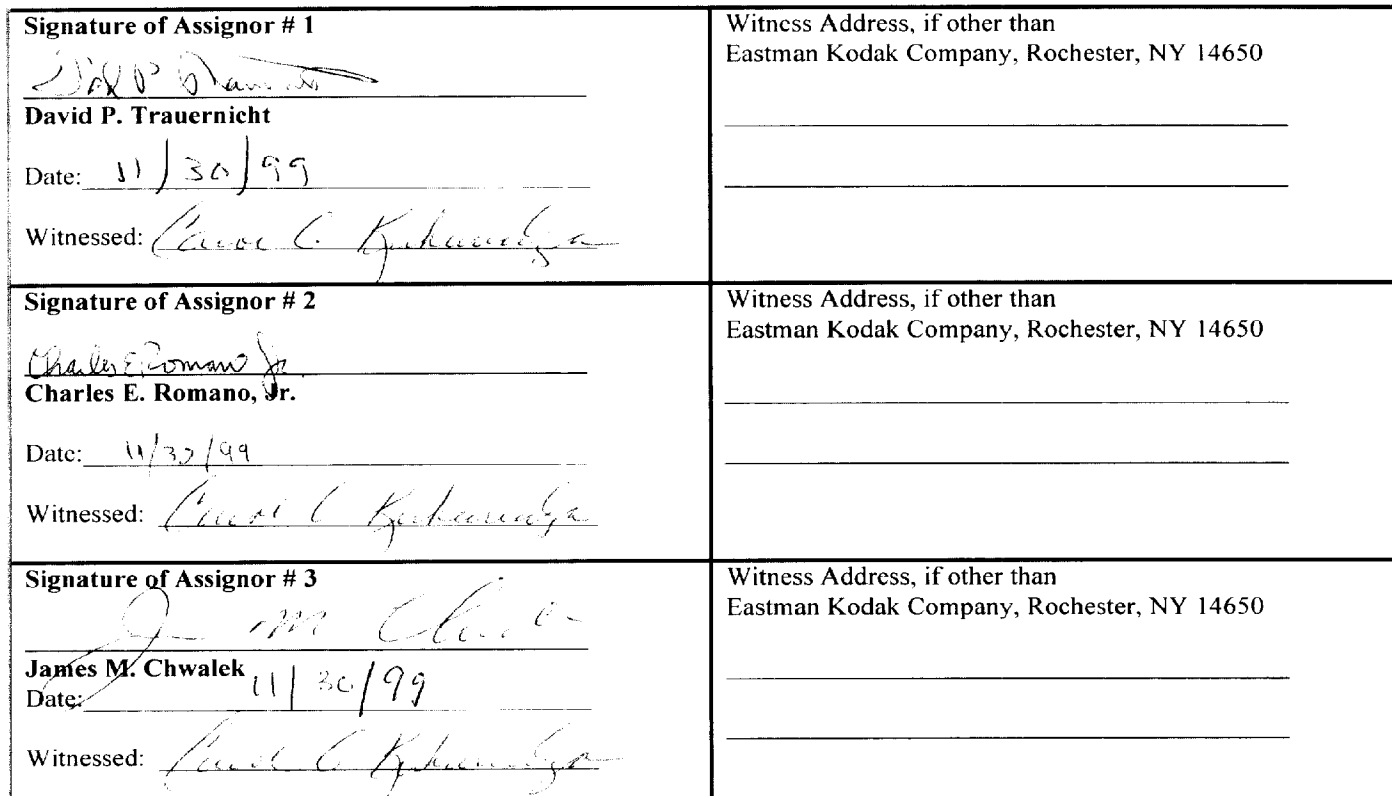 Signature of Assignor # 1
David P. Trauernicht
Date: 11/30/99
Witnessed: Carol C.
Witness Address, if other than
Eastman Kodak Company, Rochester, NY 14650
Signature of Assignor # 2
Charles E. Romano Jr.
Charles E. Romano, Jr.
Date: 11/30/99
Witnessed: Carol C
Witness Address, if other than
Eastman Kodak Company, Rochester, NY 14650
Signature of Assignor # 3
James M. Chwalek
Date: 11/30/99
Witnessed: Carol C.
Witness Address, if other than
Eastman Kodak Company, Rochester, NY 14650